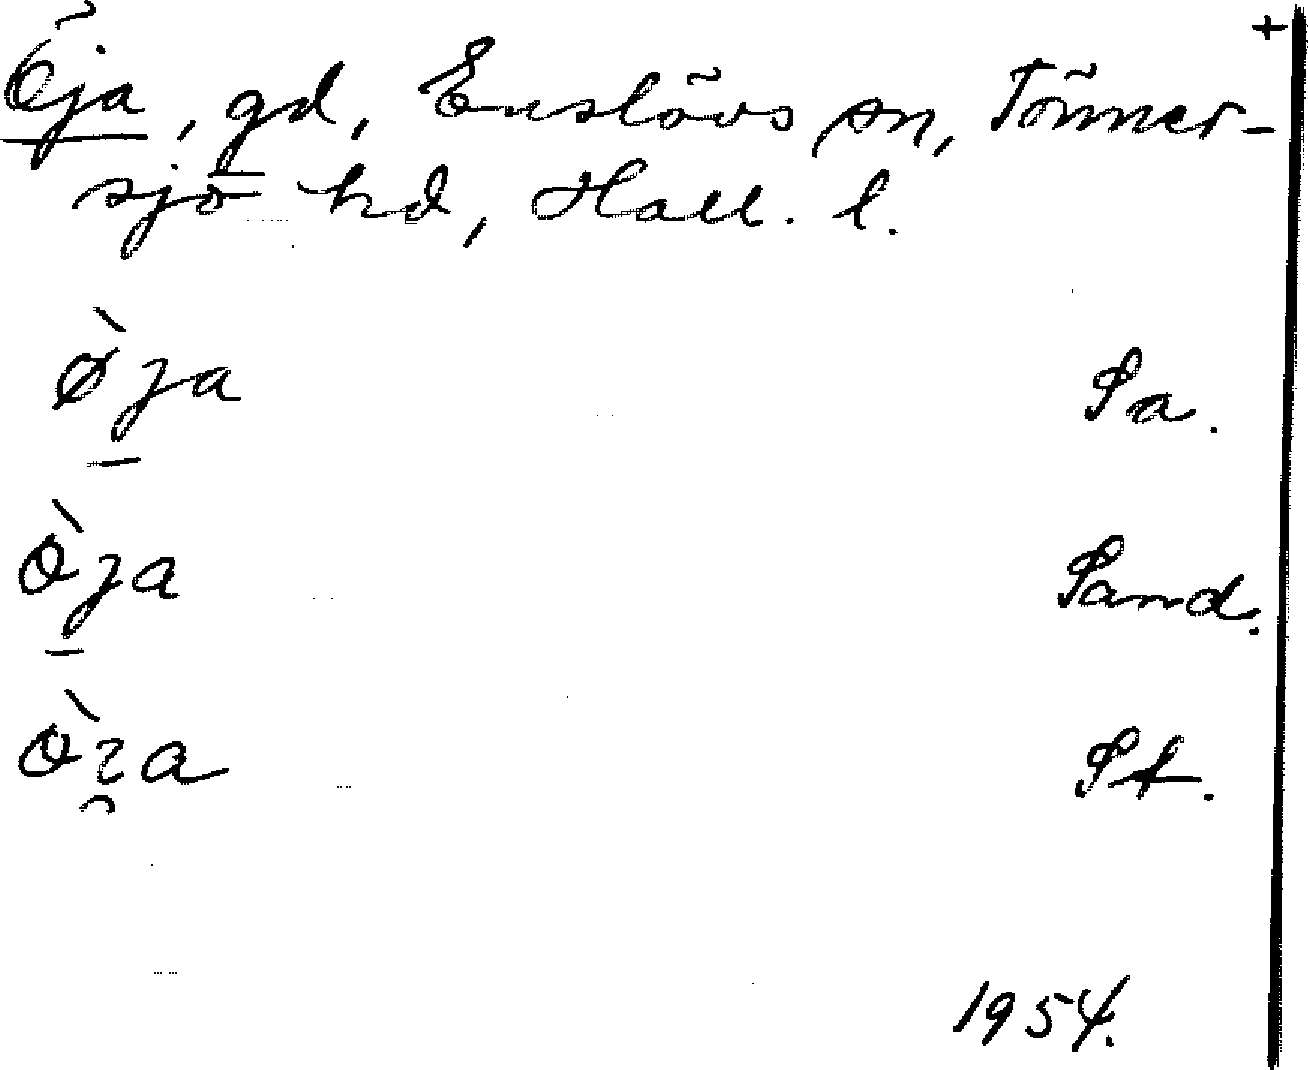 +
Öja, gd, Enslövs sn, Tönner-
sjö hd, Hall. l.
ø̀ja Sa.
òja Sand.
òɿa St.
1954.